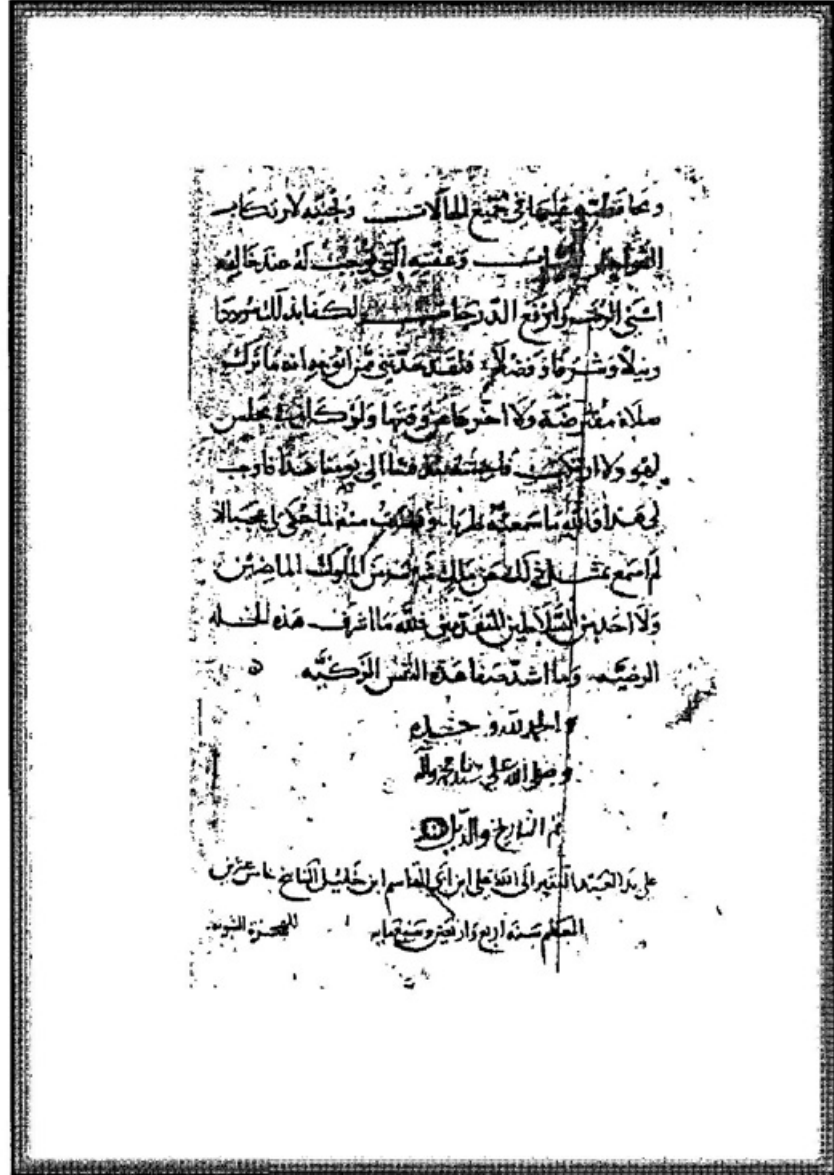 ومحافظته عليها في جميع الحالات وتجنبه لارتكاب
وعفته التي توجب له عند خالقه
اسنى الرتب وارفع الدرجات لكفا بذلك سوددا
ونبلا وشرفا وفضلا فلقد حدثني من اثق به انه ما ترك
صلاة مفترضة ولا اخرها عن وقتها ولو كان في مجلس
لهو ولا ارتكب فاحشة منذ نشا الى يومنا هذا فاوجب
لي هذا والله ما سمعته طربا منه لما حكي لي عجبا لا
لم اسمع بمثل ذلك عن ملك من الملوك الماضين
ولا احد من السلاطين المتقدمين فلله ما اشرف هذه الخله
الرضيه وما اشد صفا هذه النفس الزكيه
والحمد لله وحده
وصلى الله على سيدنا محمد وآله
تم التاريخ والذيل
على يد العبد الفقير الى الله علي ابن ابي القاسم ابن خليل
المعظم سنة اربع واربعين وسبعمايه للهجرة النبويه